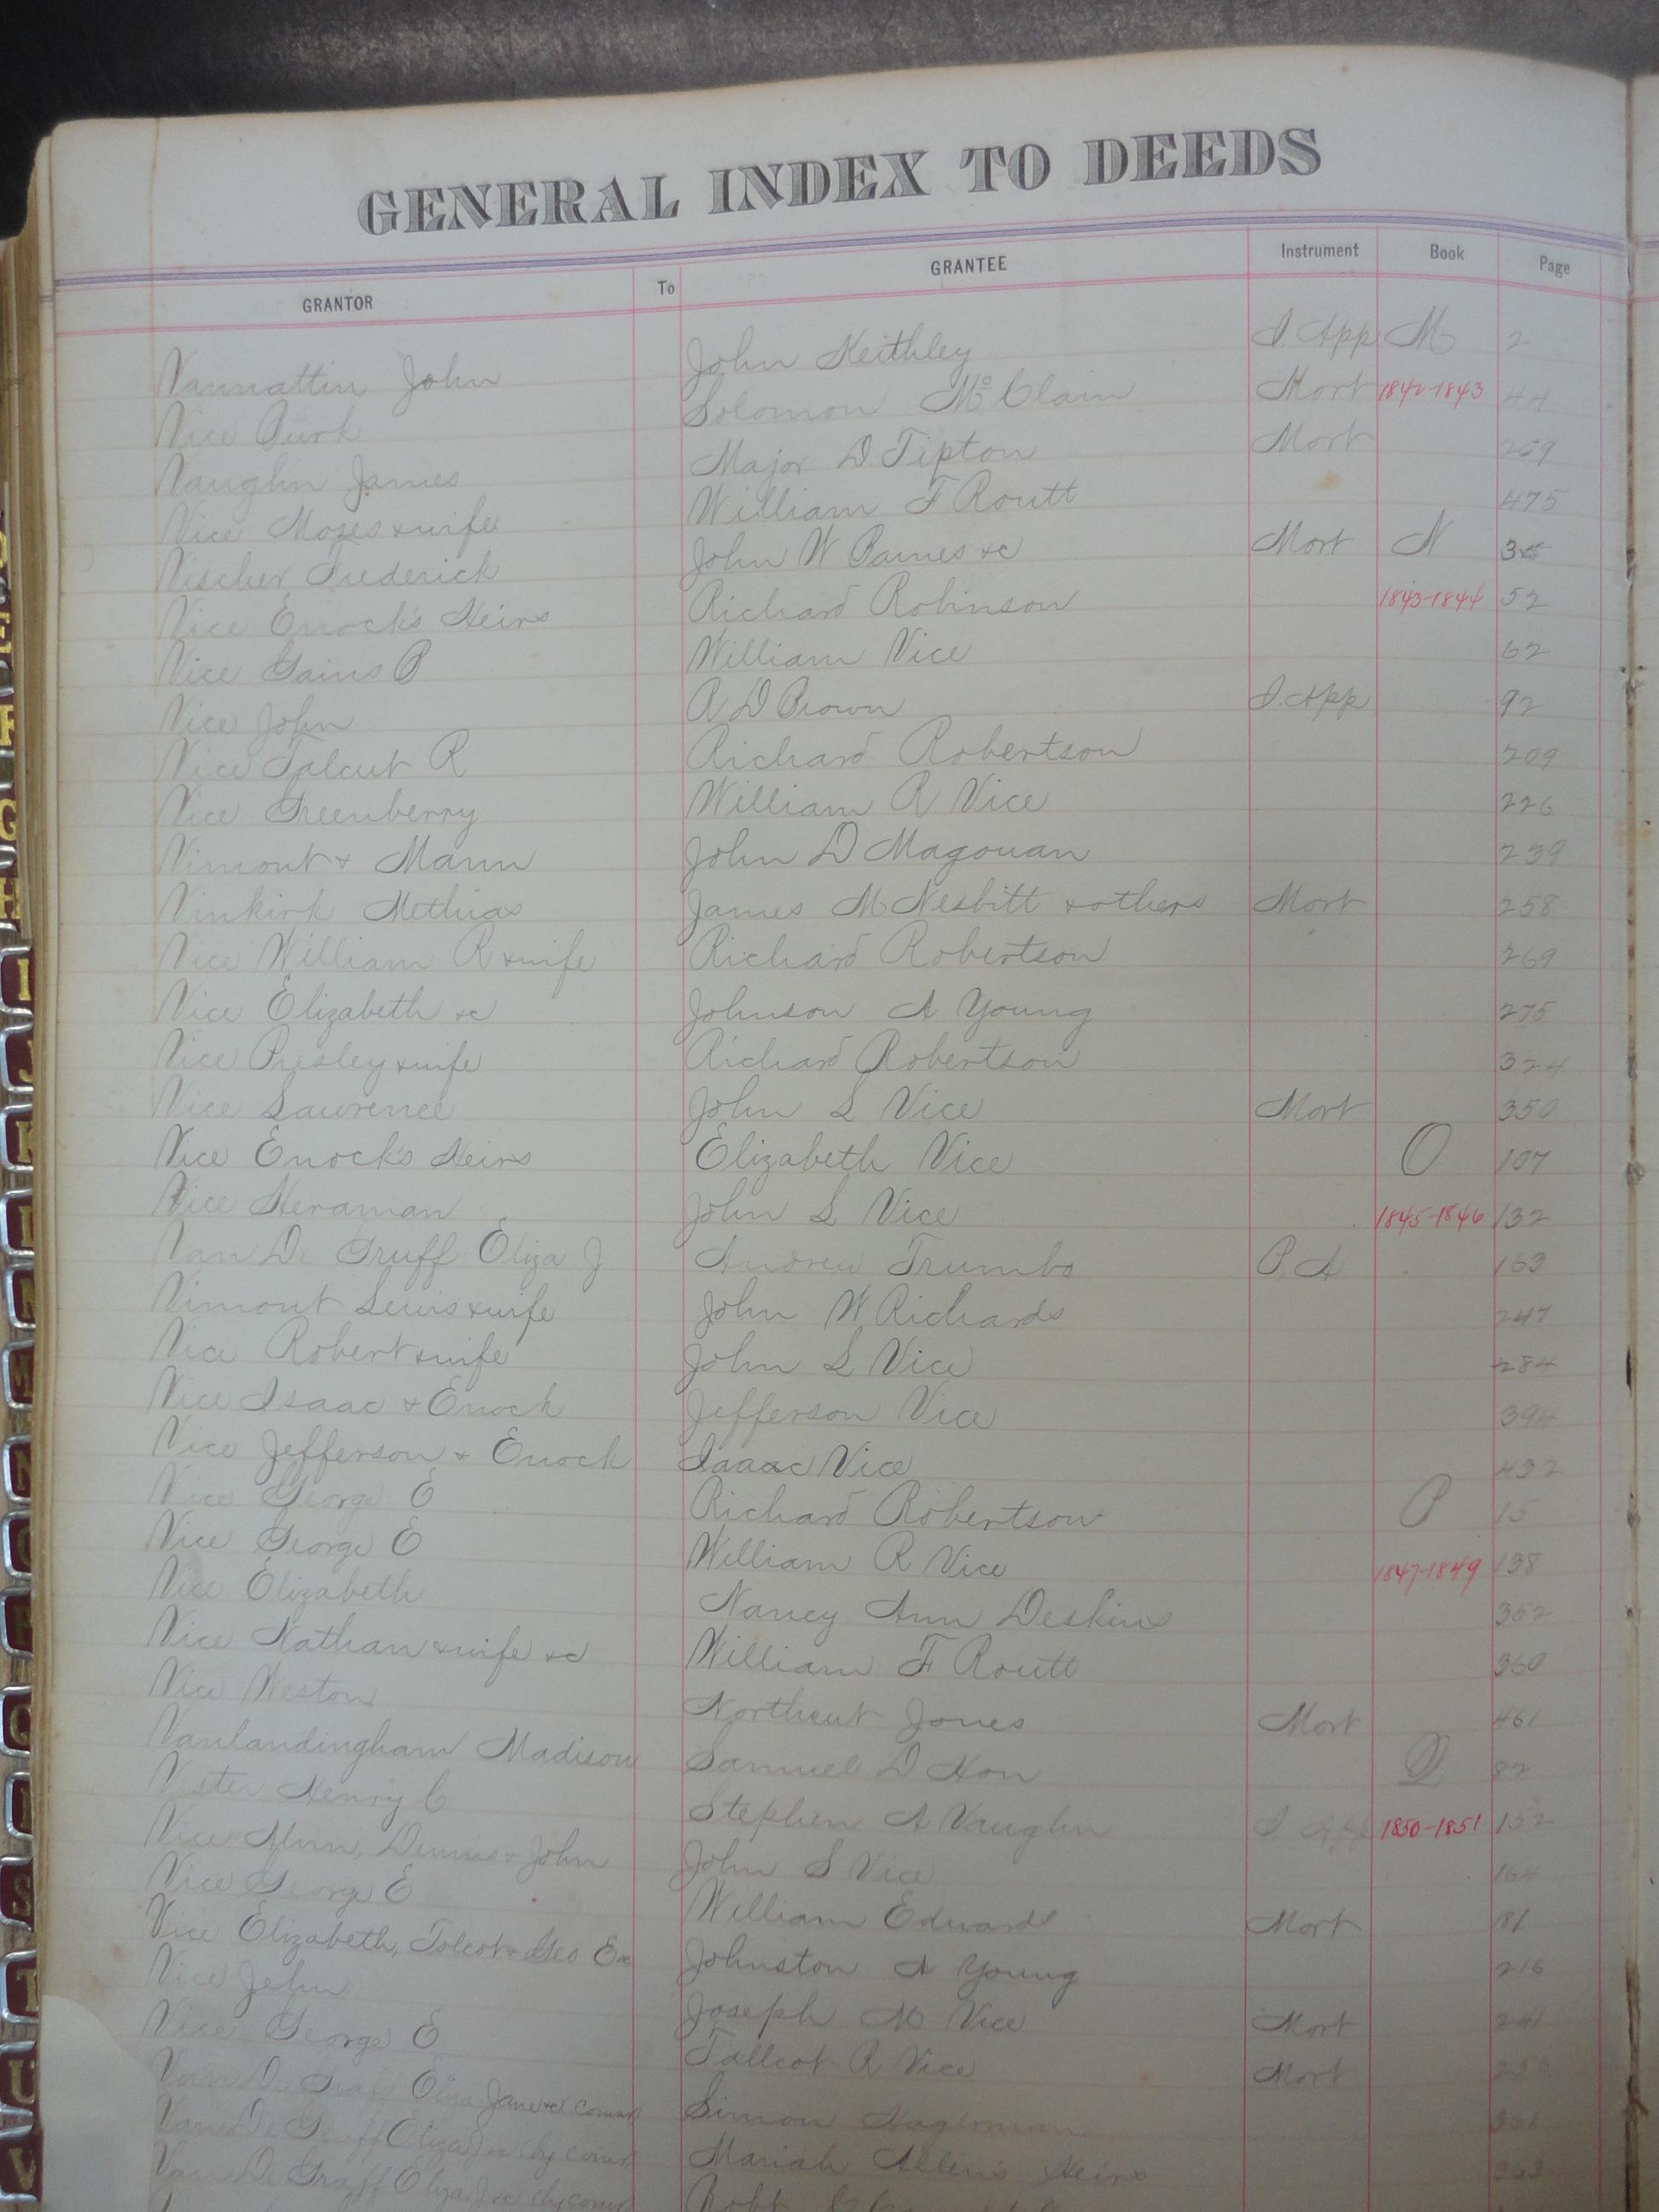 GENERAL INDEX TO DEEDS
GRANTOR To GRANTEE Instrument Book Page
Vannattin John John Keithley I. App M 2
Vice Burk Solomon Mc Clain Mort 1842-1843 44
Vaughn James Major D. Tipton Mort 209
Vice Moses & wife William F Routt 475
Vischer Frederick John W Barnes &c Mort N
Vice Enock's Heirs Richard Robinson 1843-1844 52
Vice Gains B William Vice 62
Vice John R D Brown I. App 92
Vice Talcut R Richard Robertson 209
Vice Greenberry William R Vice 226
Vimont & Mann John D Magouan 239
Vinkirk Methias James M Nesbitt & others Mort 258
Vice William R & wife Richard Robertson 269
Vice Elizabeth &c Johnson A Young 275
Vice Presley & wife Richard Robertson 324
Vice Lawrence John L Vice Mort 350
Vice Enock's Heirs Elizabeth Vice O 107
Vice Heraman John L Vice 1845-1846 132
Van De Gruff Eliza J Andrew Trumbo P. A 163
Vimont Lewis & wife John W. Richards 247
Vice Robert & wife John L Vice 284
Vice Isaac & Enock Jefferson Vice 394
Vice Jefferson & Enock Isaac Vice 432
Vice George E Richard Robertson P 15
Vice George E William R Vice 1847-1849 138
Vice Elizabeth Nancy Ann Deskins 352
Vice Nathan & wife &c William F Routt 360
Vice Weston Northcut Jones Mort 461
Vanlandingham Madison Samuel D Hon Q 82
Vester Henry C Stephen A Vaughn I. App 1850-1851 152
Vice Dennis & John John S Vice 164
Vice George E William Edward Mort 181
Vice Elizabeth, Tolcot & Geo E &c Johnston A Young 216
Vice John Joseph M Vice Mort 241
Vice George E Tallcot R Vice Mort
Van De Graff Eliza Jane &c Simon Hagerman 361
Van De Graff Eliza J &c (by comr) Mariah Allen's Heirs 363
Van De Graff Eliza J &c (by comr) Robt